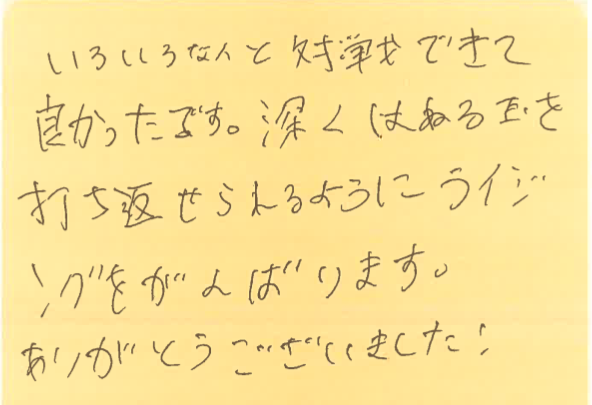 いろいろな人と対戦できて
良かったです。深くはねる玉を
打ち返せられるようにライジ
ングをがんばります。
ありがとうございました!